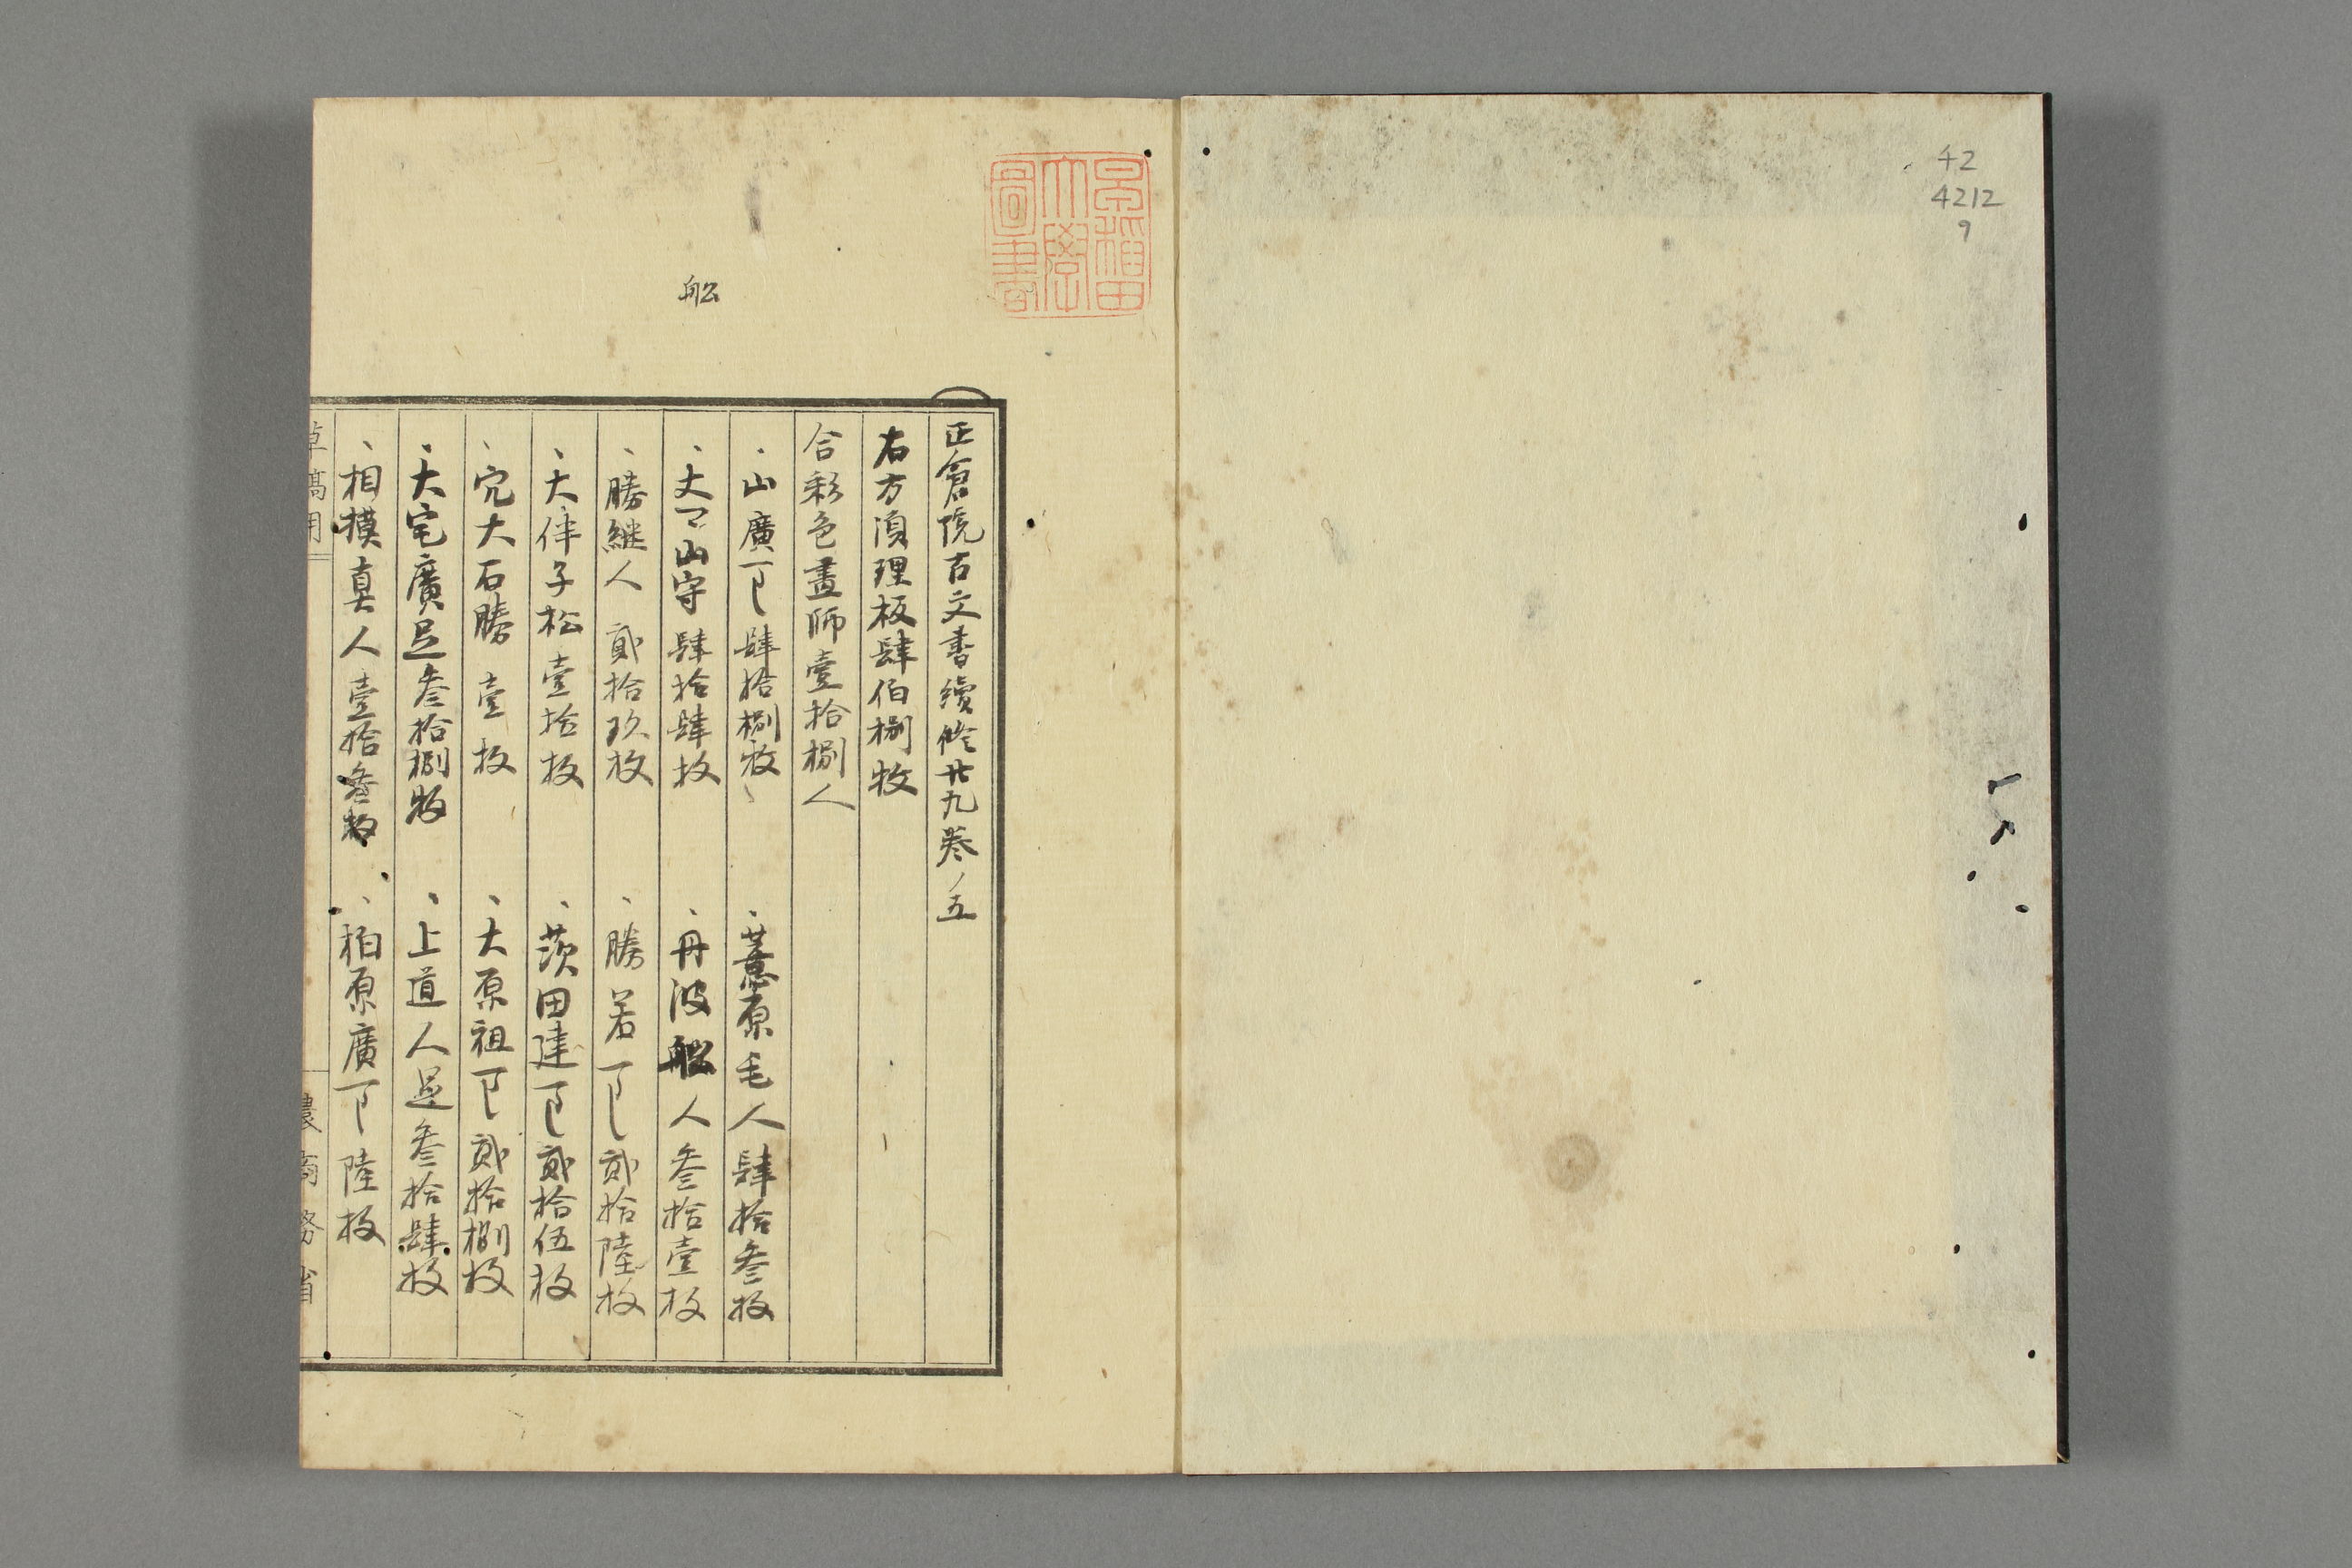 42
4212
9
早稲田大學圖書
船
正倉院古文書續修廿九巻ノ五
右方須理板肆伯捌枚
合彩色畫師壹拾捌人
、山廣万呂肆拾捌枚 、薏原毛人肆拾叁枚
、丈了山守肆拾肆枚 、丹波船人叁拾壹枚
、勝継人貳拾玖枚 、勝若万呂貳拾陸枚
、大伴子松壹拾枚 、茨田建万呂貳拾伍枚
、宍大石勝壹枚 、大原祖万呂貳拾捌枚
、大宅廣足叁拾捌枚 、上道人足叁拾肆枚
、相摸真人壹拾叁枚 、柏原廣万呂陸枚
草稿用 農商務省